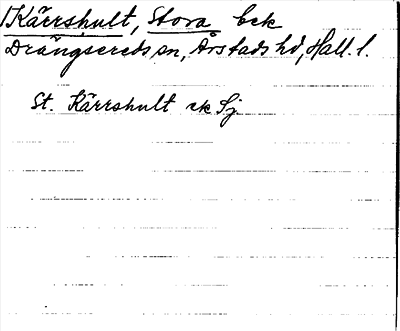 Kärrshult, Stora bek
Drängsereds sn, Årstads hd, Hall. l.
St. Kärrshult ek Sj.